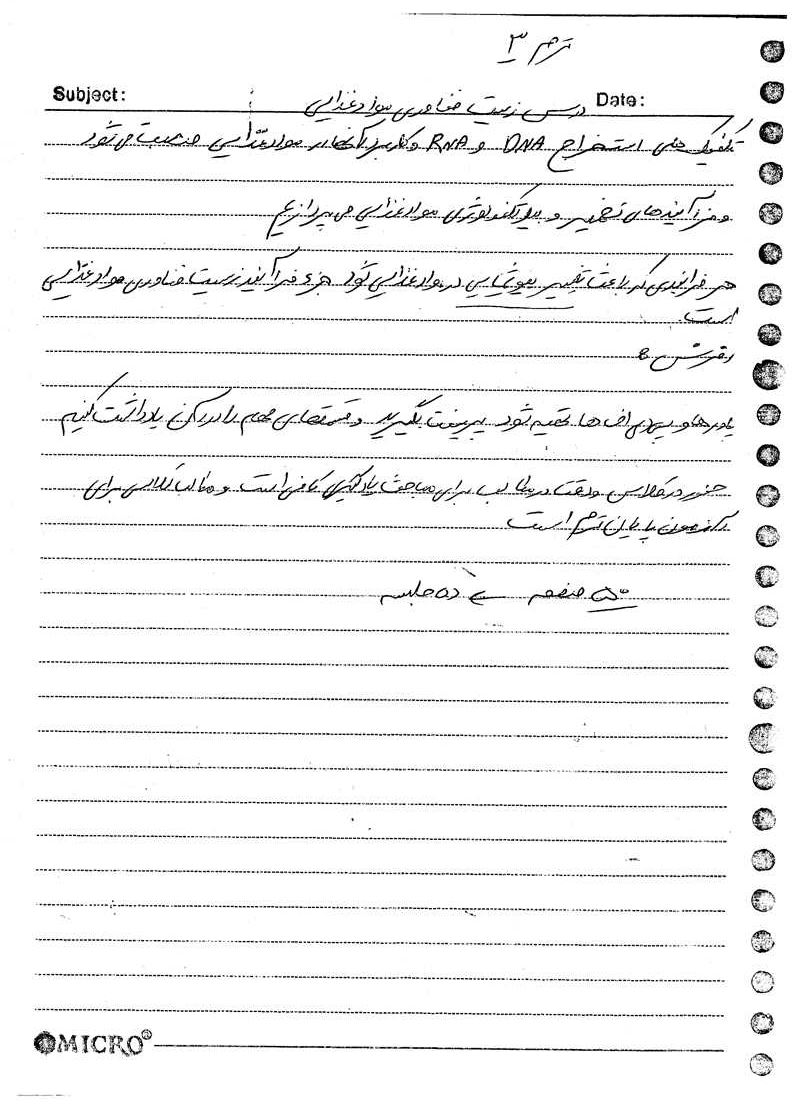 ترم ۳
Subject: Date:
درس زیست فناوری مواد غذایی
تکنیک های استخراج DNA و RNA و کاربرد آنها در مواد غذایی صحبت می شود
و فرآیندهای تخمیر و بیوتکنولوژی مواد غذایی می پردازیم
هر فرایندی که باعث تغییر بیوشیمیایی در مواد غذایی شود جزء فرآیند زیست فناوری مواد غذایی
است.
پاورها و پی دی اف ها تهیه شود پرینت بگیرید و قسمتهای مهم را در آن یادداشت کنیم
حضور در کلاس و دقت در مطالب برای مباحث یادگیری کافی است و مطالب کلاس برای
آزمون پایان ترم است
۵۰ صفحه ده جلسه
MICRO®